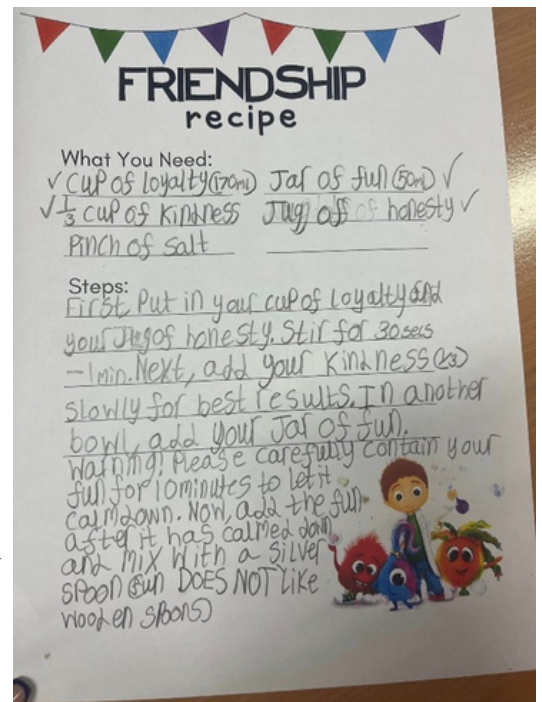 FRIENDSHIP
recipe
What You Need:
✓ Cup of loyalty (170ml) Jar of fun (50ml) ✓
✓ 1/3 cup of kindness Jug off of honesty ✓
Pinch of salt
Steps:
First Put in your cup of Loyalty and
your Jug of honesty. Stir for 30 secs
- 1 min. Next, add your Kindness (1/3)
slowly for best results. In another
bowl, add your Jar of fun.
Warning! Please carefully contain your
fun for 10 minutes to let it
calm down. Now, add the fun
after it has calmed down
and mix with a silver
spoon (fun DOES NOT like
wooden spoons)